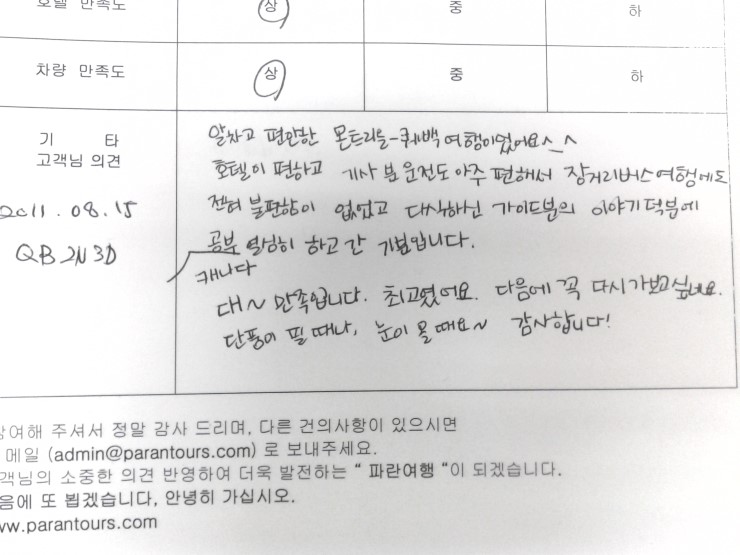 호텔 만족도 상 중 하
차량 만족도 상 중 하
기 타
고객님 의견
2011.08.15
QB 2N3D
알차고 편안한 몬트리올-퀘백 여행이었어요^_^
호텔이 편하고 기사 분 운전도 아주 편해서 장거리버스여행에도
전혀 불편함이 없었고 대식하신 가이드분의 이야기 덕분에
공부 열심히 하고 간 기분입니다.
캐나다
대~만족입니다. 최고였어요. 다음에 꼭 다시가보고싶네요.
단풍이 필 때나, 눈이 올 때요~ 감사합니다!
참여해 주셔서 정말 감사 드리며, 다른 건의사항이 있으시면
메일 (admin@parantours.com) 로 보내주세요.
객님의 소중한 의견 반영하여 더욱 발전하는 “ 파란여행 “이 되겠습니다.
음에 또 뵙겠습니다, 안녕히 가십시오.
ww.parantours.com